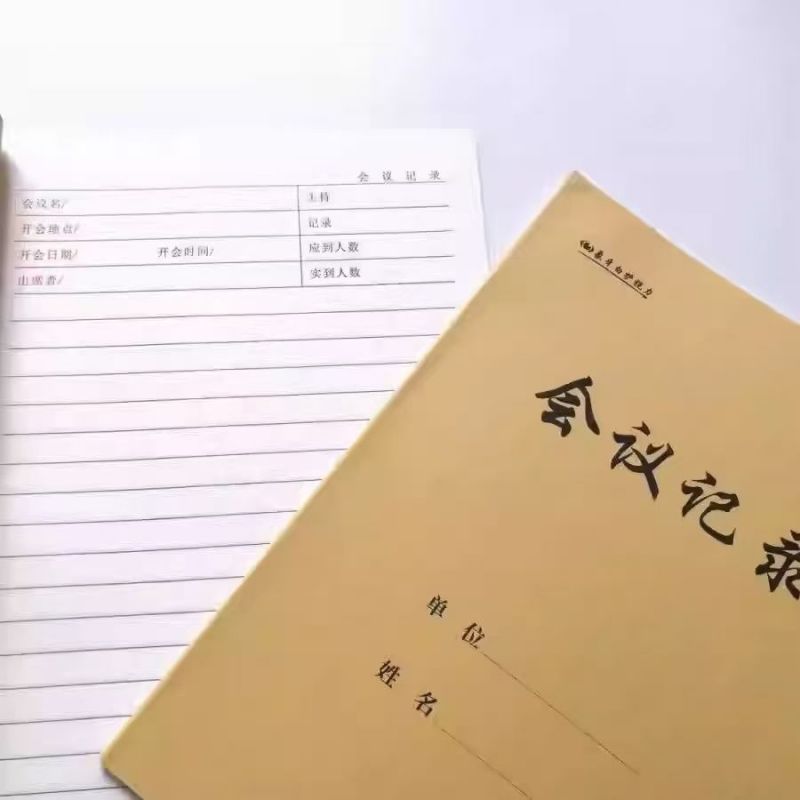 会议记录
会议名/ 主持
开会地点/ 记录
开会日期/ 开会时间/ 应到人数
出席者/ 实到人数
象牙白护视力
会议记录
单位
姓名